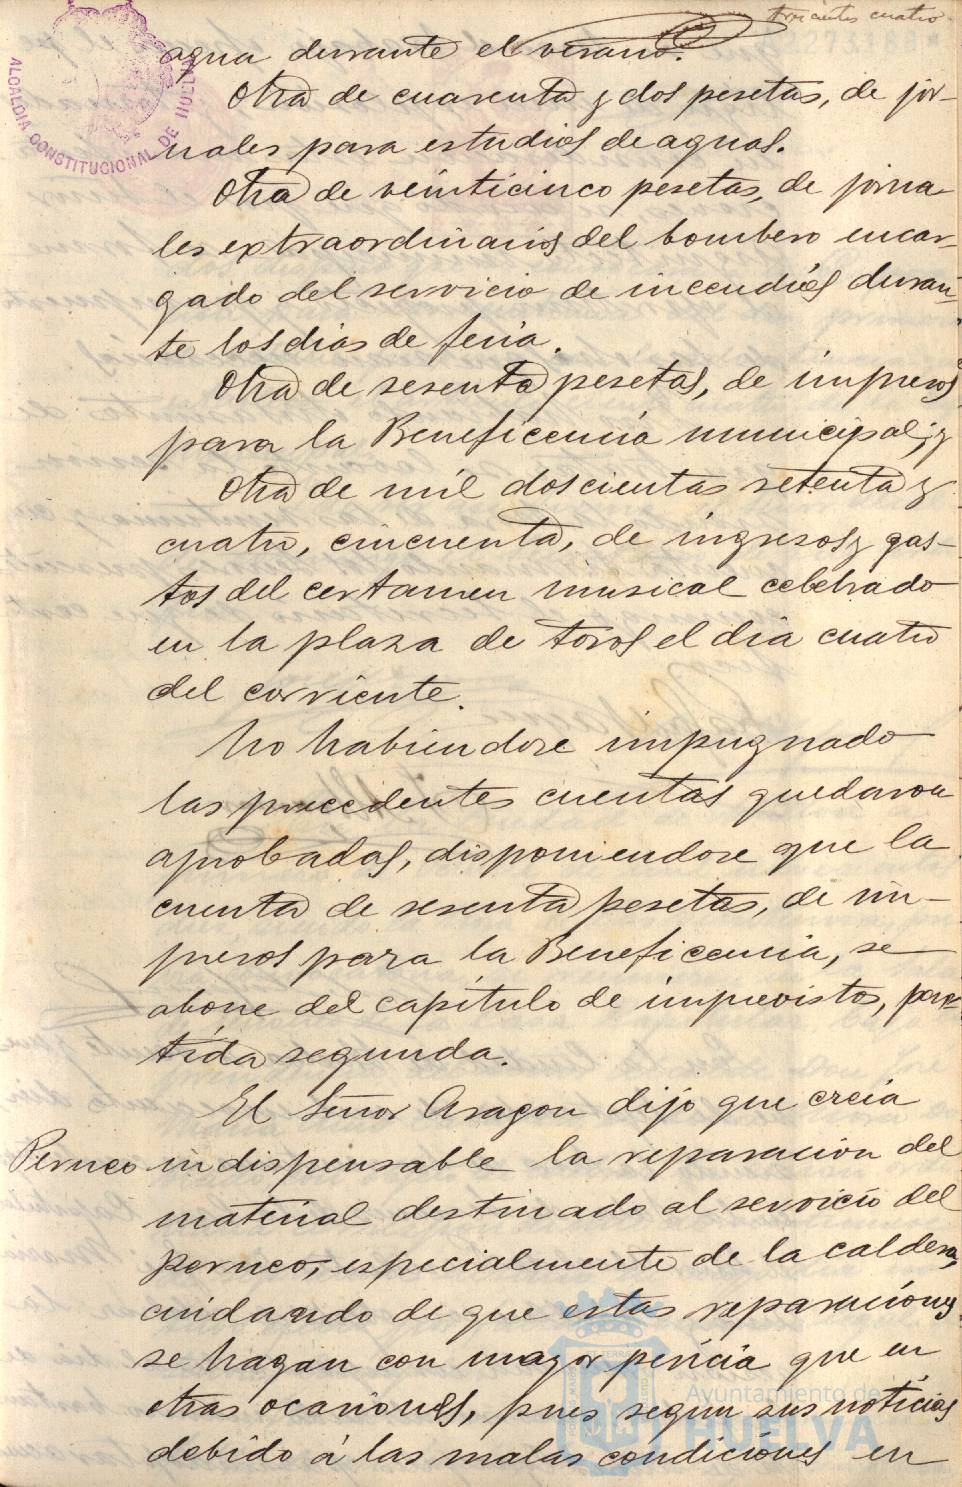 trescientos cuatro
ALCALDIA CONSTITUCIONAL DE HUELVA
agua durante el verano.
Otra de cuarenta y dos pesetas, de jor-
nales para estudios de aguas.
Otra de veinticinco pesetas, de jorna-
les extraordinarios del bombero encar-
gado del servicio de incendios duran-
te los dias de feria.
Otra de sesenta pesetas, de impresos
para la Beneficencia municipal; y
Otra de mil doscientas setenta y
cuatro, cincuenta, de ingresos y gas-
tos del certamen musical celebrado
en la plaza de toros el dia cuatro
del corriente.
No habiendose impugnado
las precedentes cuentas quedaron
aprobadas, disponiendose que la
cuenta de sesenta pesetas, de im-
presos para la Beneficencia, se
abone del capítulo de imprevistos, par-
tida segunda.
El Señor Aragon dijo que creia
Perneo indispensable la reparacion del
material destinado al servicio del
perneo, especialmente de la caldera,
cuidando de que estas reparaciones
se hagan con mayor pericia que en
otras ocasiones, pues segun sus noticias
debido á las malas condiciones en
Ayuntamiento de
HUELVA